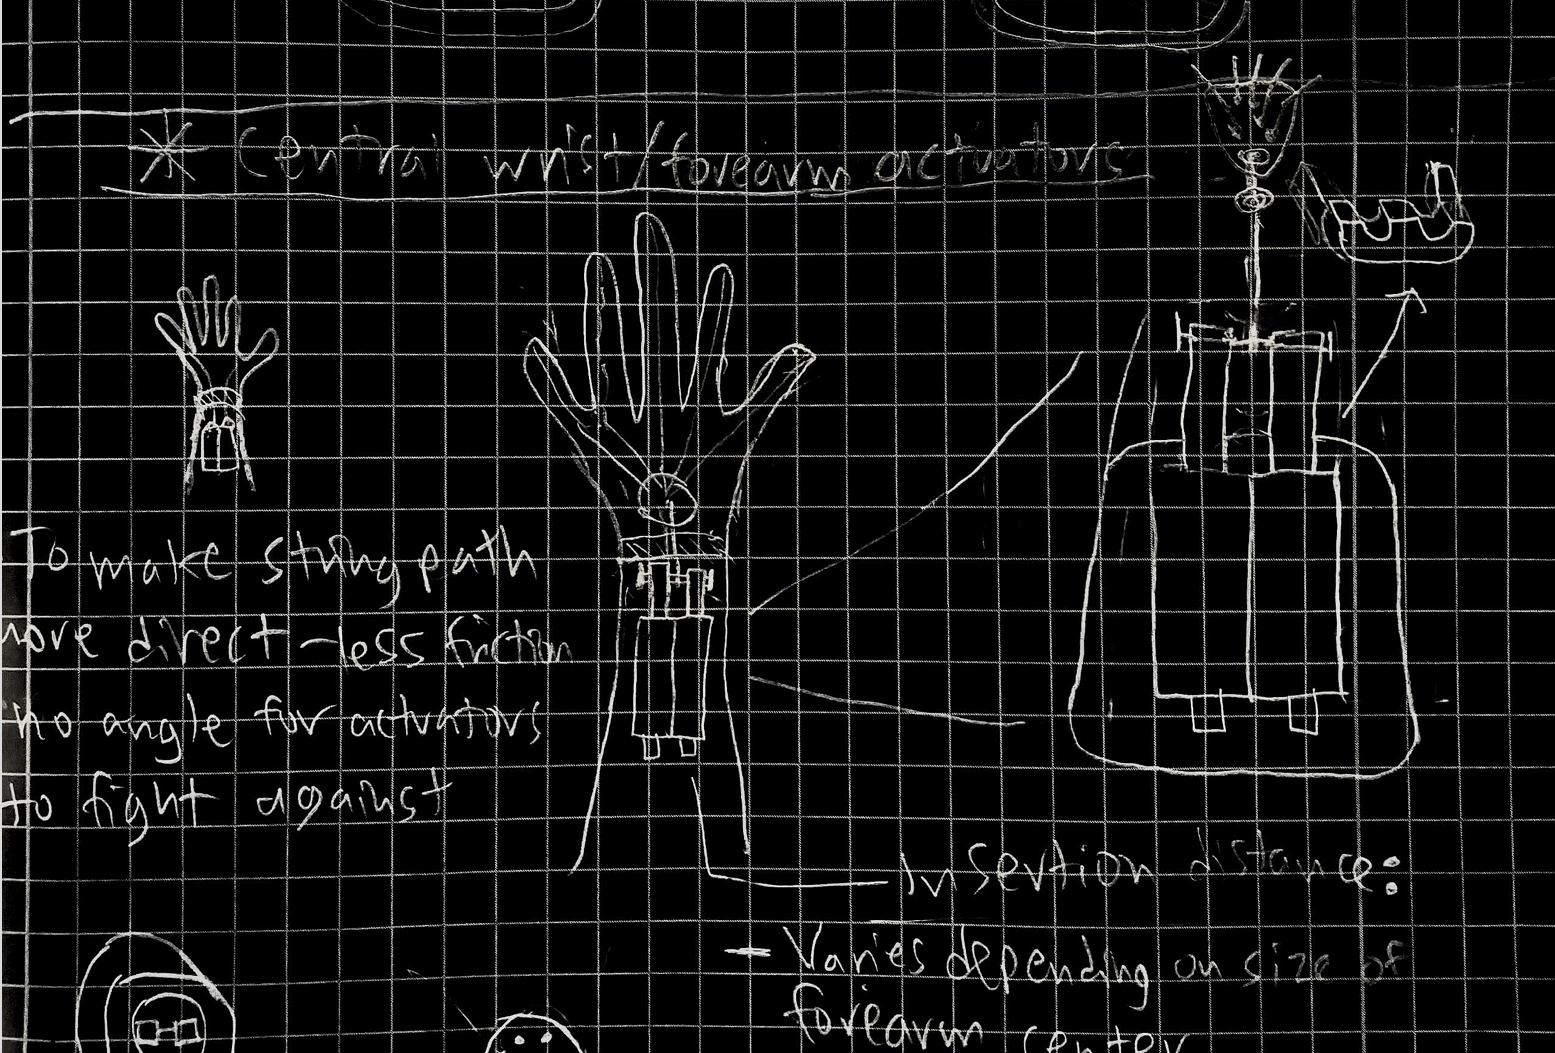 * Central wrist/forearm actuators
To make string path
more direct - less friction
no angle for actuators
to fight against
Insertion distance:
- Varies depending on size of
forearm center